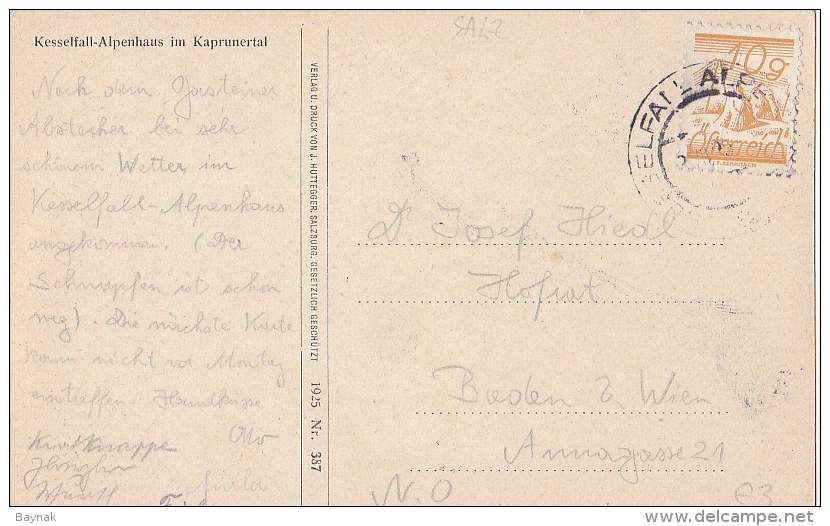 Kesselfall-Alpenhaus im Kaprunertal
SALZ
10g
Österreich
Nach dem Gasteiner
Abstecher bei sehr
schönem Wetter im
Kesselfall-Alpenhaus
angekommen. (Der
Schnupfen ist schon
weg). Die nächste Karte
kann nicht vor Montag
eintreffen. Handküsse
Otto
VERLAG U. DRUCK VON J. HUTTEGGER, SALZBURG. GESETZLICH GESCHÜTZT 1925 Nr. 387
Dr Josef Hiedl
Hofrat
Baden b. Wien
Annagasse 21
N.Ö
€3
Baynak
delcampe.net